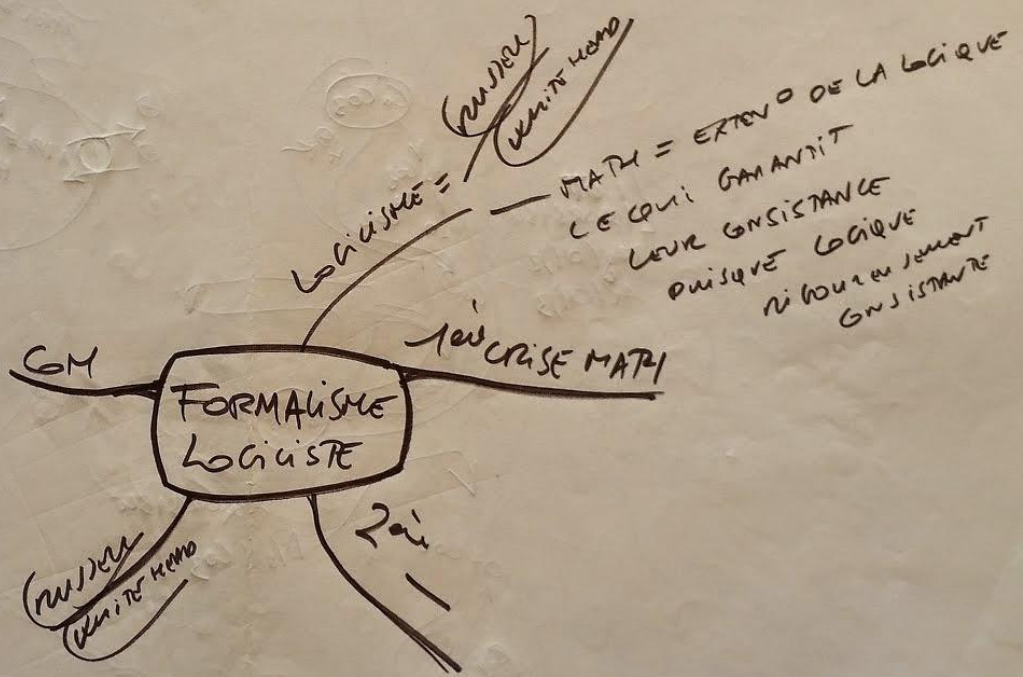 RUSSELL
WHITEHEAD
LOGICISME =
MATH = EXTENº DE LA LOGIQUE
CE QUI GARANTIT
LEUR CONSISTANCE
PUISQUE LOGIQUE
RIGOUREUSEMENT
CONSISTANTE
1ère CRISE MATH
FORMALISME
LOGICISTE
RUSSELL
WHITEHEAD